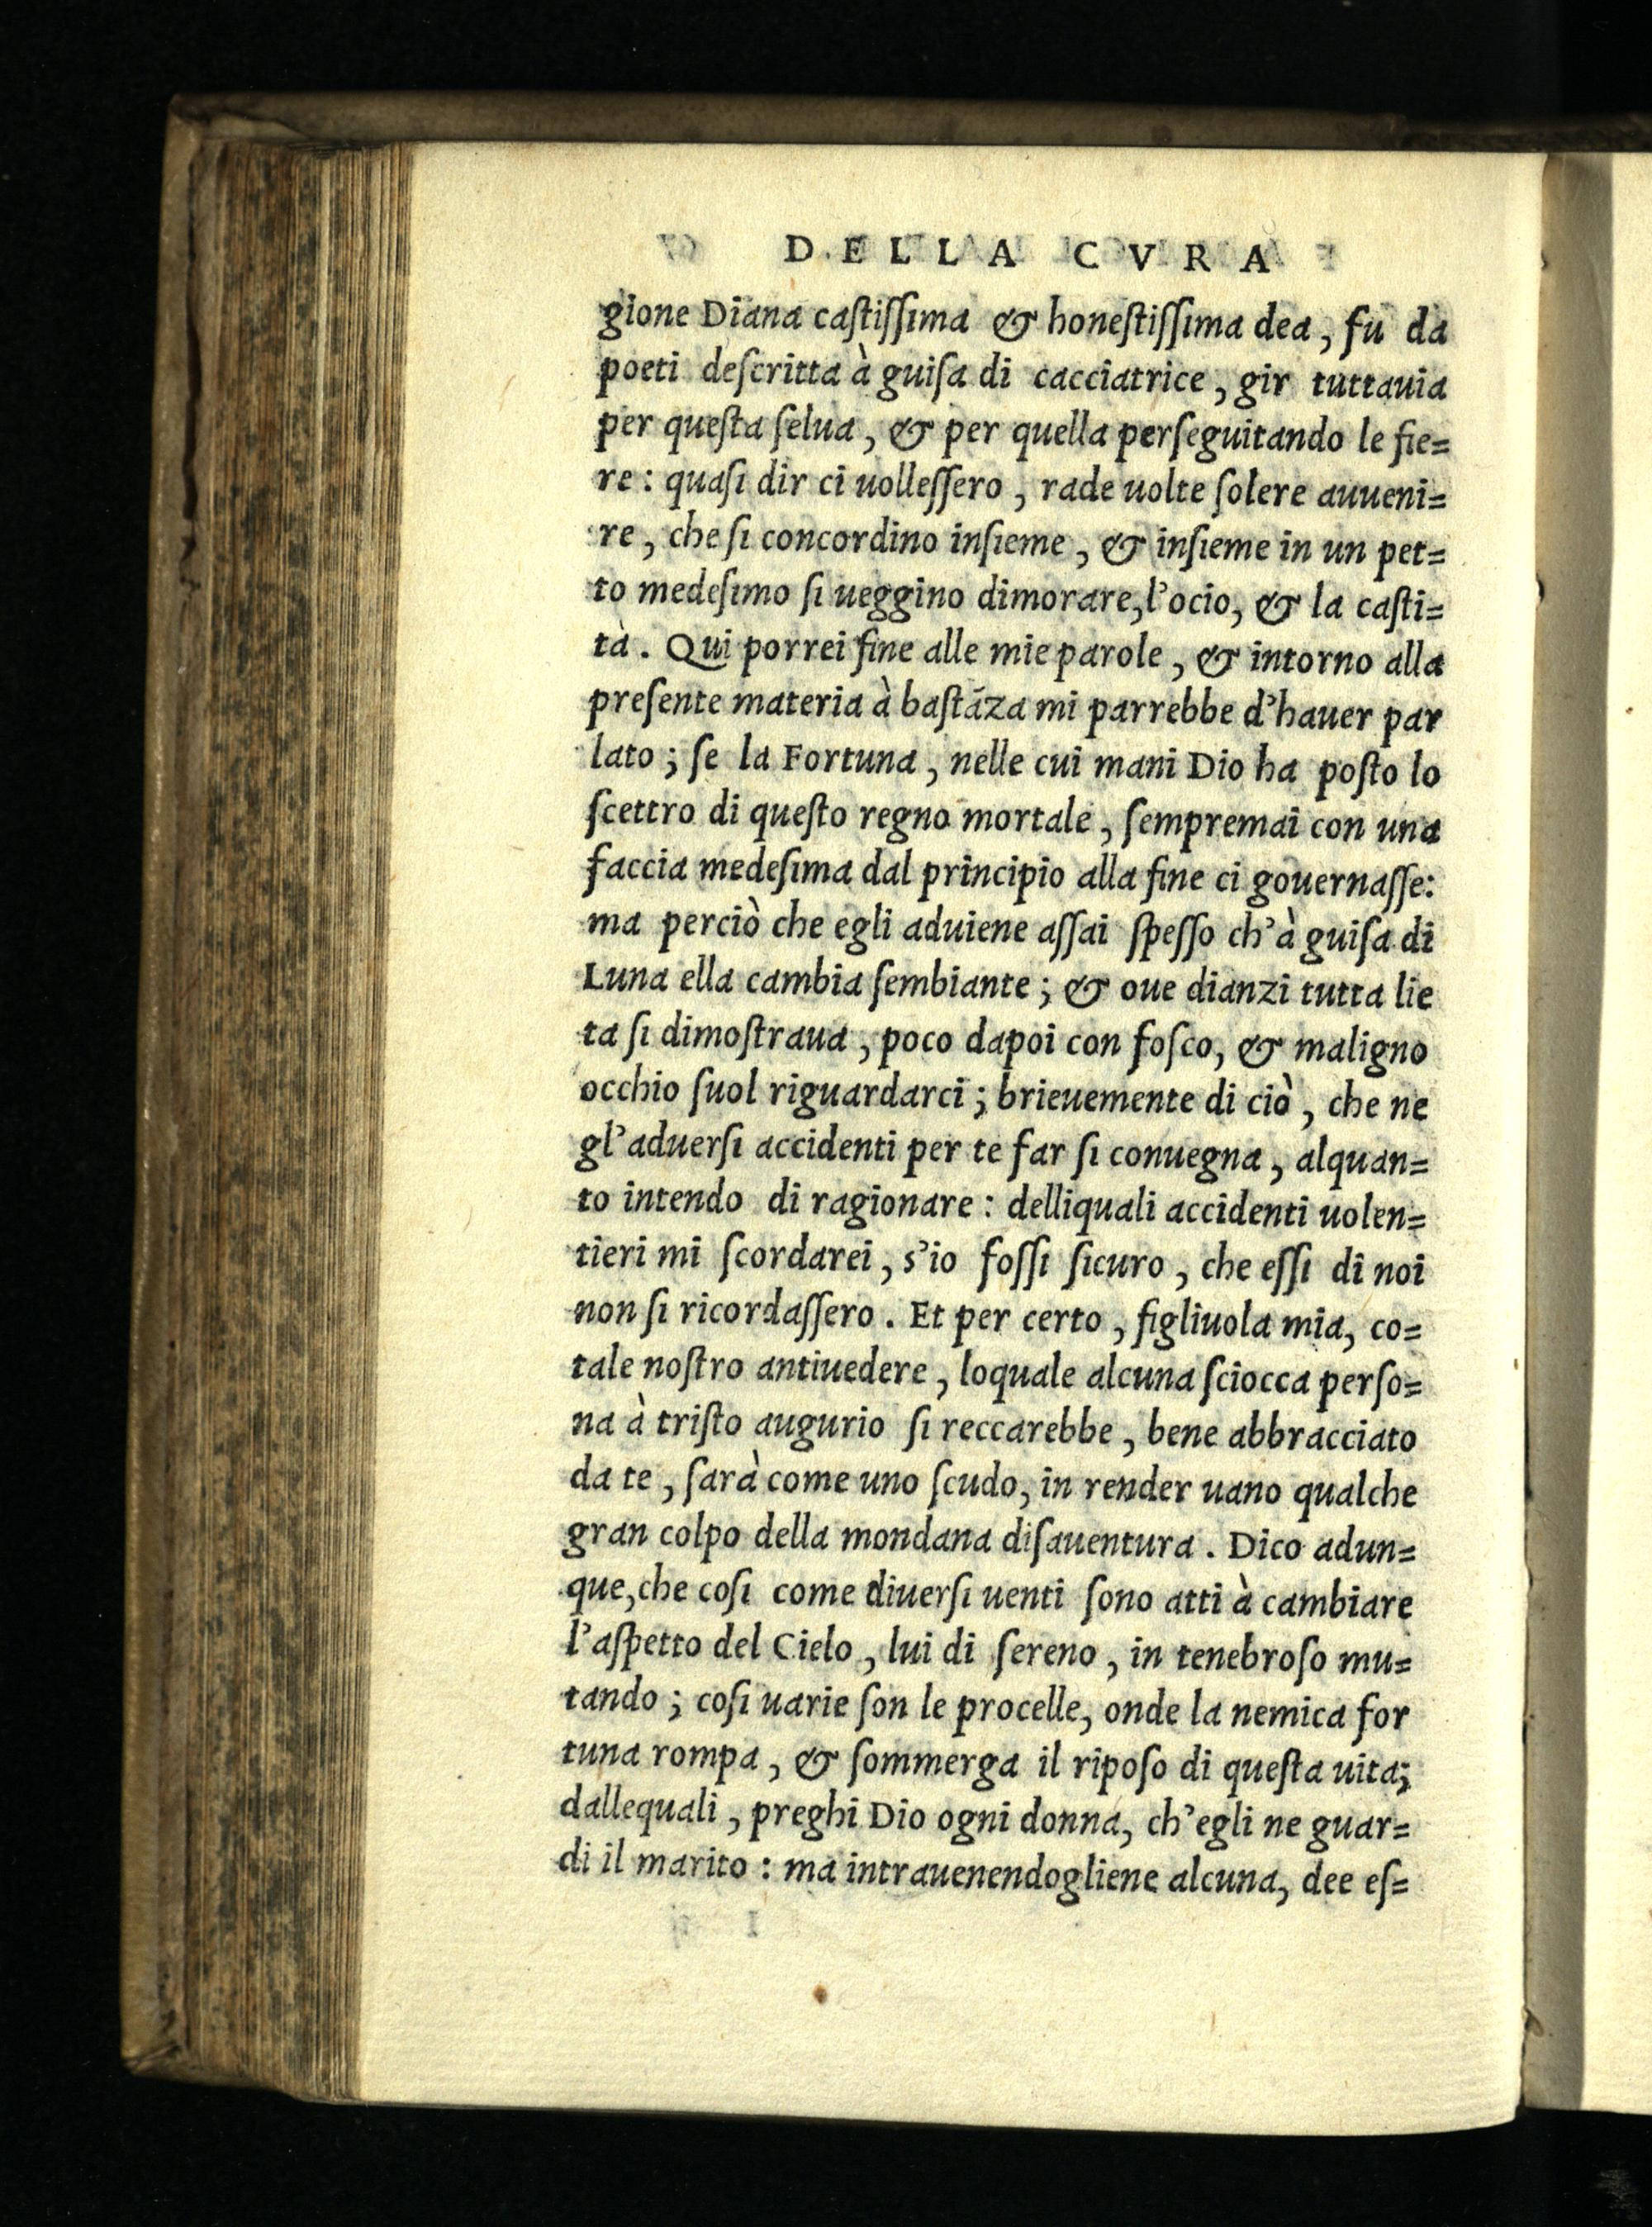 DELLA CVRA
gione Diana caſtiſſima & honeſtiſſima dea, fu da
poeti deſcritta à guiſa di cacciatrice, gir tuttauia
per queſta ſelua, & per quella perſeguitando le fie=
re: quaſi dir ci uolleſſero, rade uolte ſolere auueni=
re, che ſi concordino inſieme, & inſieme in un pet=
to medeſimo ſi ueggino dimorare, l'ocio, & la caſti=
tà. Qui porrei fine alle mie parole, & intorno alla
preſente materia à baſtãza mi parrebbe d'hauer par
lato; ſe la Fortuna, nelle cui mani Dio ha poſto lo
ſcettro di queſto regno mortale, ſempremai con una
faccia medeſima dal principio alla fine ci gouernaſſe:
ma perciò che egli aduiene aſſai ſpeſſo ch'à guiſa di
Luna ella cambia ſembiante; & oue dianzi tutta lie
ta ſi dimoſtraua, poco dapoi con foſco, & maligno
occhio ſuol riguardarci; brieuemente di ciò, che ne
gl'aduerſi accidenti per te far ſi conuegna, alquan=
to intendo di ragionare: delliquali accidenti uolen=
tieri mi ſcordarei, s'io foſſi ſicuro, che eſſi di noi
non ſi ricordaſſero. Et per certo, figliuola mia, co=
tale noſtro antiuedere, loquale alcuna ſciocca perſo=
na à triſto augurio ſi reccarebbe, bene abbracciato
da te, ſarà come uno ſcudo, in render uano qualche
gran colpo della mondana diſauentura. Dico adun=
que, che coſi come diuerſi uenti ſono atti à cambiare
l'aſpetto del Cielo, lui di ſereno, in tenebroſo mu=
tando; coſi uarie ſon le procelle, onde la nemica for
tuna rompa, & ſommerga il ripoſo di queſta uita;
dallequali, preghi Dio ogni donna, ch'egli ne guar=
di il marito: ma intrauenendogliene alcuna, dee eſ=